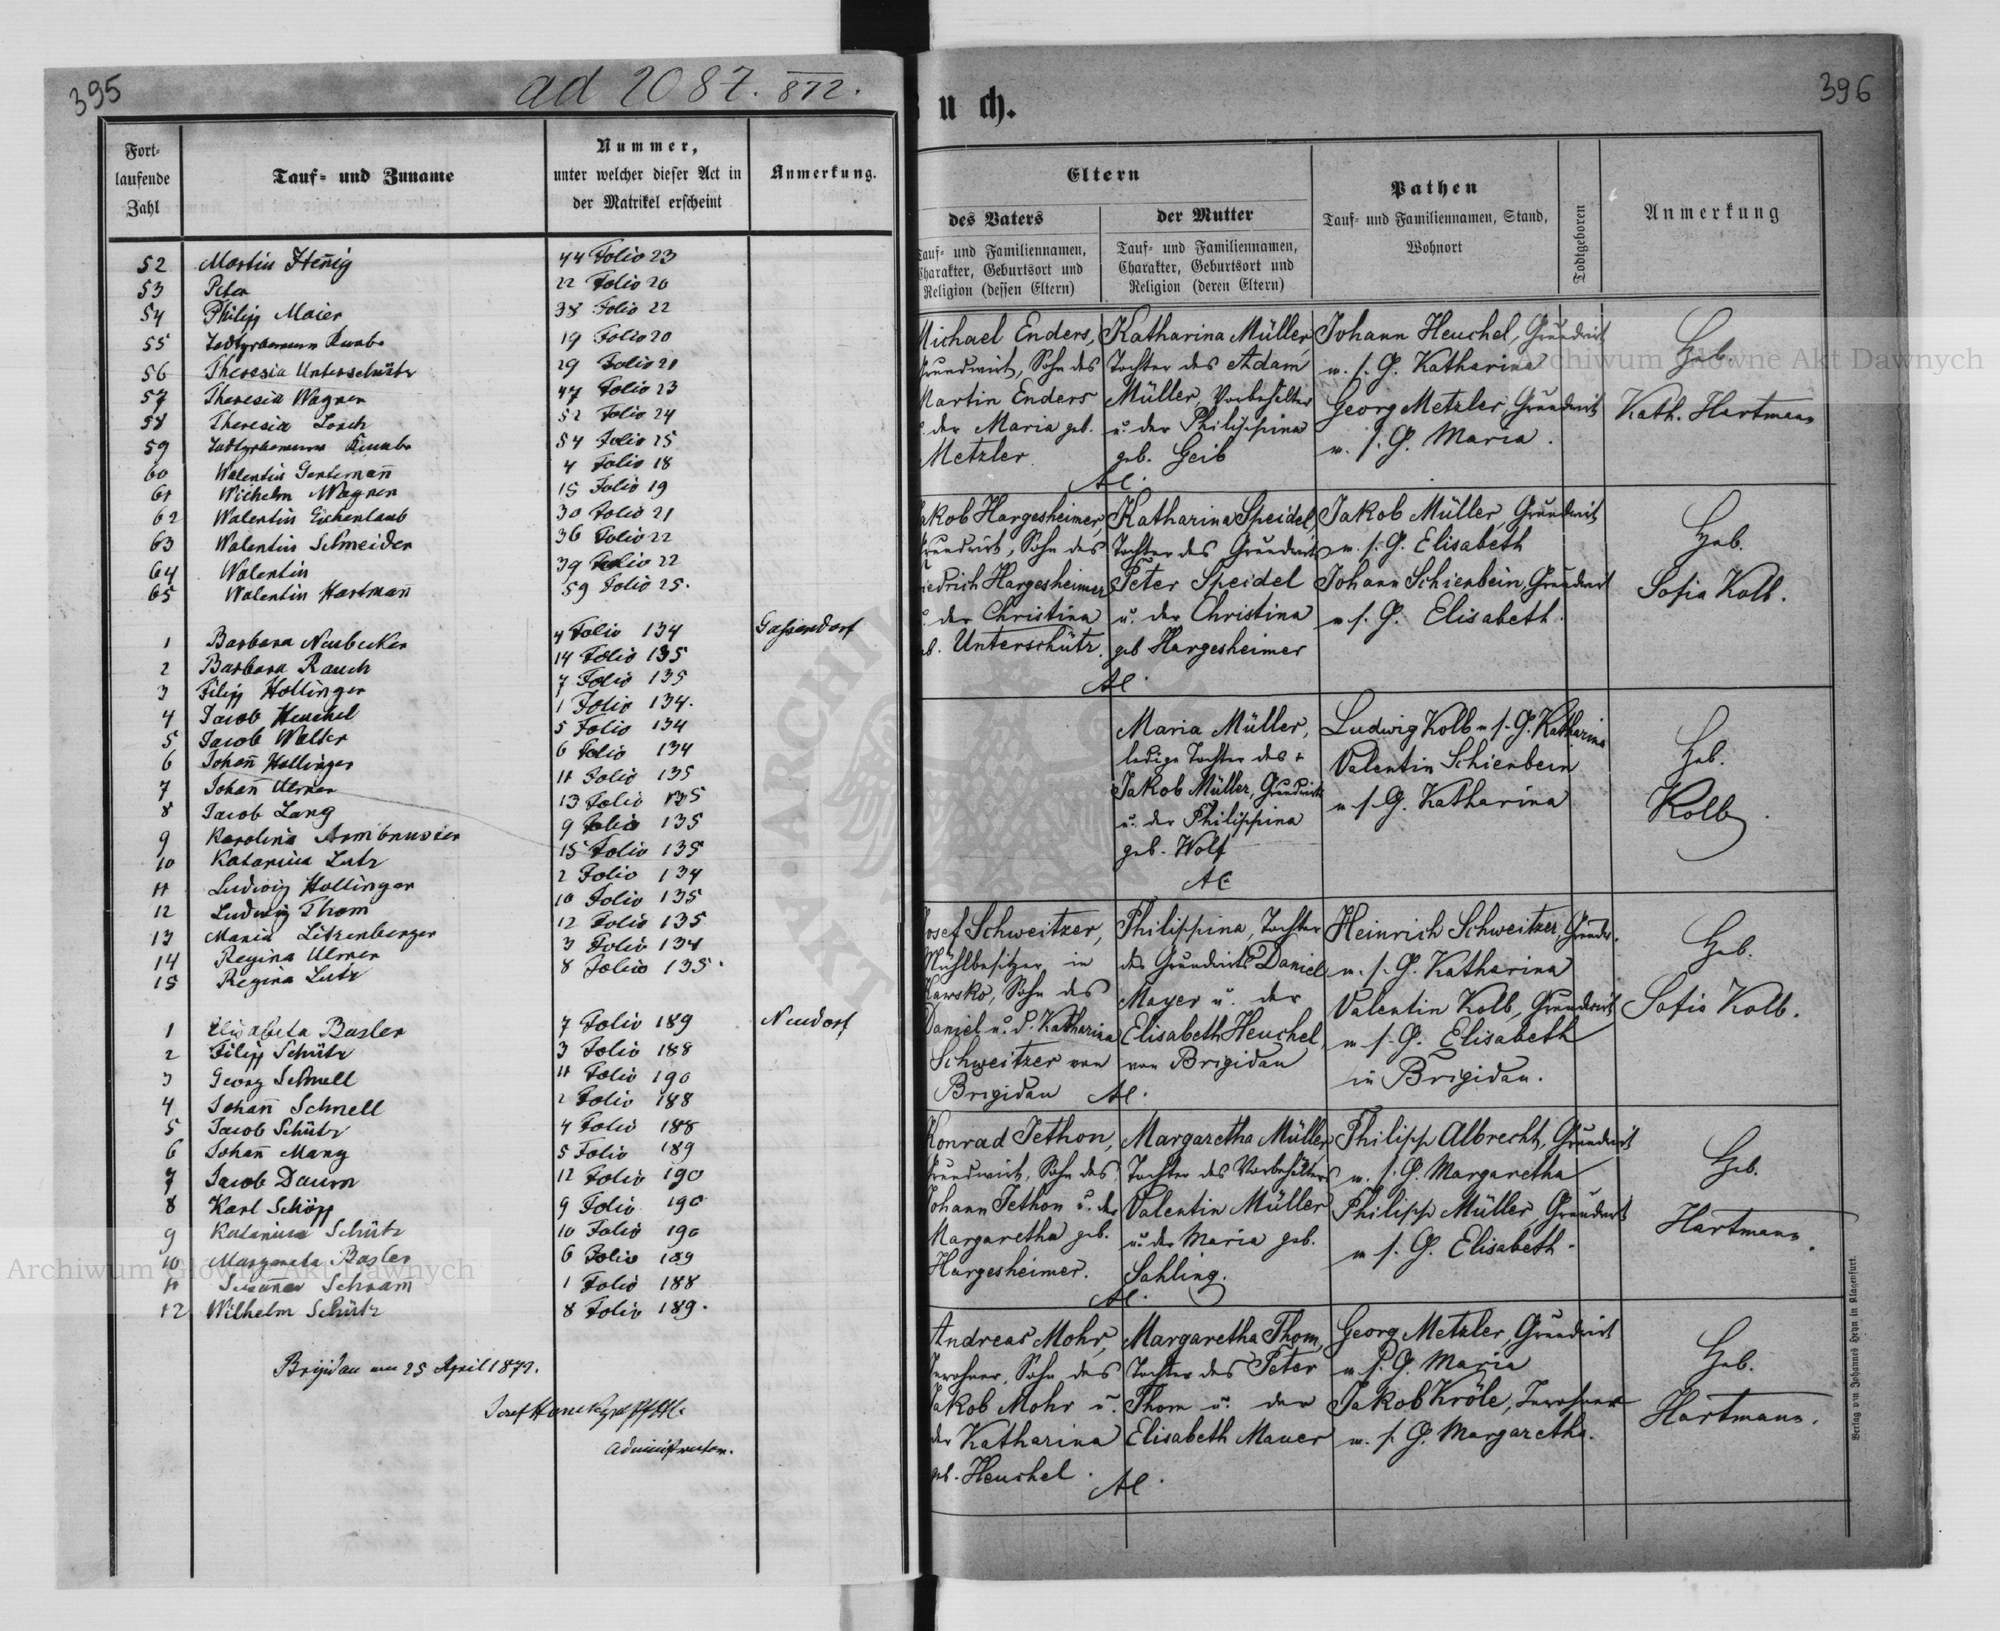 395
ad 2087. 872.
Fort-
laufende
Zahl
Tauf- und Zuname
Nummer,
unter welcher dieser Act in
der Matrikel erscheint
Anmerkung.
52 Martin Henig 44 Folio 23
53 Peter 22 Folio 20
54 Philipp Maier 38 Folio 22
55 19 Folio 20
56 Theresia Unterschütz 29 Folio 21
57 Theresia Wagner 47 Folio 23
58 Theresia Losch 52 Folio 24
59 54 Folio 25
60 Walentin 4 Folio 18
61 Wilhelm Wagner 15 Folio 19
62 Walentin Eichenlaub 30 Folio 21
63 Walentin Schneider 36 Folio 22
64 Walentin 39 Folio 22
65 Walentin Hartmañ 59 Folio 25.
1 Barbara Neubecker 4 Folio 134 Gassendorf
2 Barbara Rauch 14 Folio 135
3 Filipp Hollinger 7 Folio 135
4 Jacob Heuchel 1 Folio 134.
5 Jacob Walter 5 Folio 134
6 Johañ Hollinger 6 Folio 134
7 Johañ Ulmer 11 Folio 135
8 Jacob Lang 13 Folio 135
9 Karolina Armbruster 9 Folio 135
10 Katarina Lutz 15 Folio 135
11 Ludwig Hollinger 2 Folio 134
12 Ludwig Thom 10 Folio 135
13 Maria Litzenberger 12 Folio 135
14 Regina Ulmer 3 Folio 134
15 Regina Lutz 8 Folio 135.
1 Elisabeta Basler 7 Folio 189 Neudorf
2 Filipp Schütz 3 Folio 188
3 Georg Schnell 11 Folio 190
4 Johañ Schnell 2 Folio 188
5 Jacob Schütz 4 Folio 188
6 Johañ Mang 5 Folio 189
7 Jacob Daum 12 Folio 190
8 Karl Schöpp 9 Folio 190
9 Katarina Schütz 10 Folio 190
10 Margareta Basler 6 Folio 189
11 Schram 1 Folio 188
12 Wilhelm Schütz 8 Folio 189.
Brigidau am 25 April 1872.
Josef
Administrator.
396
uch.
Eltern
des Vaters
Tauf- und Familiennamen,
Charakter, Geburtsort und
Religion (dessen Eltern)
der Mutter
Tauf- und Familiennamen,
Charakter, Geburtsort und
Religion (deren Eltern)
Pathen
Tauf- und Familiennamen, Stand,
Wohnort
Todtgeboren
Anmerkung
Michael Enders,
Grundwirt, Sohn des
Martin Enders
u. der Maria geb.
Metzler
Katharina Müller,
Tochter des Adam
Müller, Vorbehälter
u. der Philippina
geb. Geib
AC.
Johann Heuchel, Grundwirt
u. s. G. Katharina
Georg Metzler, Grundwirt
u. s. G. Maria.
Heb.
Kath. Hartmann
Jakob Hargesheimer,
Grundwirt, Sohn des
Friedrich Hargesheimer
u. der Christina
geb. Unterschütz.
Katharina Speidel,
Tochter des Grundwirts
Peter Speidel
u. der Christina
geb Hargesheimer
AC.
Jakob Müller, Grundwirt
u. s. G. Elisabeth
Johann Schienbein, Grundwirt
u s. G. Elisabeth.
Heb.
Sofia Kolb.
Maria Müller,
ledige Tochter des +
Jakob Müller, Grundwirts
u. der Philippina
geb. Wolf
AC
Ludwig Kolb u s. G. Katharina
Valentin Schienbein
u s. G. Katharina
Heb.
Kolb.
Josef Schweitzer,
Mühlbesitzer in
Sohn des
Daniel u. d. Katharina
Schweitzer von
Brigidau
Philippina, Tochter
des Grundwirts Daniel
Mayer u. der
Elisabeth Heuchel,
von Brigidau
AC.
Heinrich Schweitzer, Grundw.
u. s. G. Katharina
Valentin Kolb, Grundwirt
u s. G. Elisabeth
in Brigidau.
Heb.
Sofia Kolb.
Konrad Jethon,
Grundwirt, Sohn des
Johann Jethon u. der
Margaretha geb.
Hargesheimer.
Margaretha Müller
Tochter des Vorbehälters
Valentin Müller
u. der Maria geb.
Sahling.
AC.
Philipp Albrecht, Grundwirt
u. s. G. Margaretha
Philipp Müller, Grundwirt
u s. G. Elisabeth.
Heb.
Hartmann.
Andreas Mohr,
Inwohner, Sohn des
Jakob Mohr u.
der Katharina
geb. Heuchel.
Margaretha Thom,
Tochter des Peter
Thom u. der
Elisabeth Mauer
AC.
Georg Metzler, Grundwirt
u s. G. Maria
Jakob Kröle, Inwohner
u. s. G. Margaretha.
Heb.
Hartmann.
Verlag von Johannes Heyn in Klagenfurt.
Archiwum Główne Akt Dawnych
Archiwum Główne Akt Dawnych